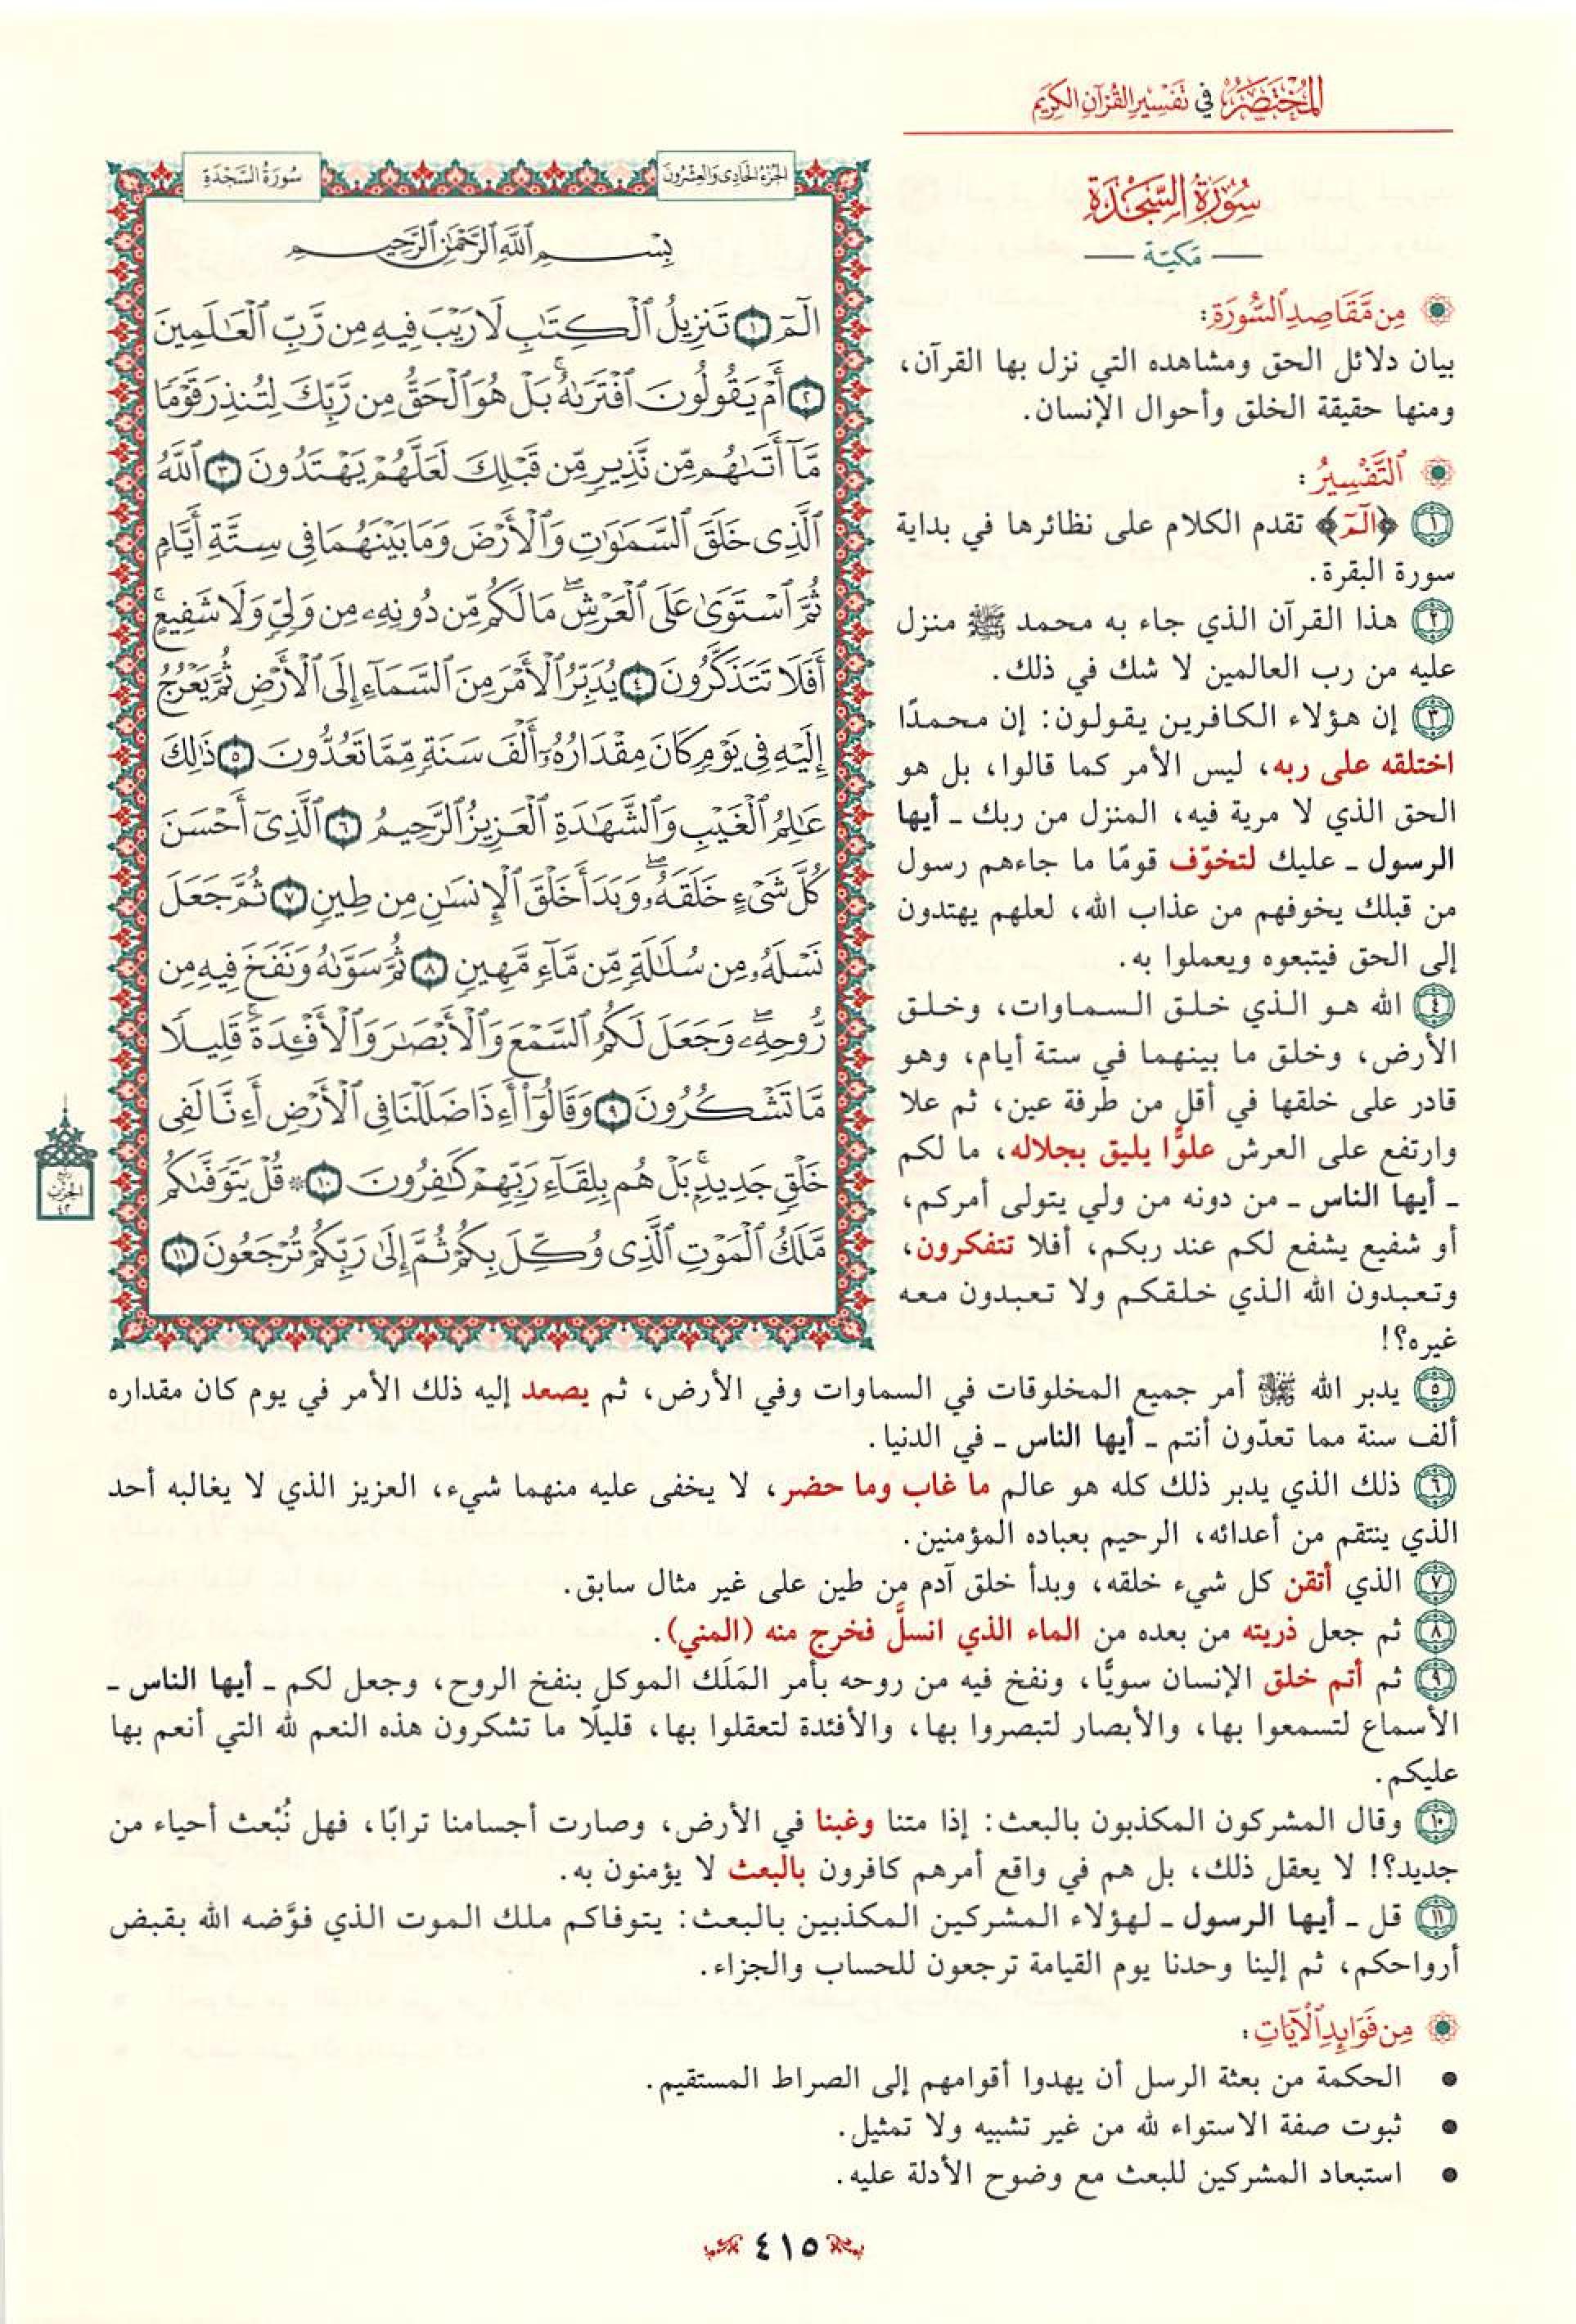 المختصر في تفسير القرآن الكريم
سُورَةُ السَّجْدَةِ
الجُزْءُ الحَادِي وَالعِشْرُونَ
بِسْمِ ٱللَّهِ ٱلرَّحْمَٰنِ ٱلرَّحِيمِ
الٓمٓ ١ تَنزِيلُ ٱلْكِتَٰبِ لَا رَيْبَ فِيهِ مِن رَّبِّ ٱلْعَٰلَمِينَ
٢ أَمْ يَقُولُونَ ٱفْتَرَىٰهُۚ بَلْ هُوَ ٱلْحَقُّ مِن رَّبِّكَ لِتُنذِرَ قَوْمًا
مَّآ أَتَىٰهُم مِّن نَّذِيرٍ مِّن قَبْلِكَ لَعَلَّهُمْ يَهْتَدُونَ ٣ ٱللَّهُ
ٱلَّذِى خَلَقَ ٱلسَّمَٰوَٰتِ وَٱلْأَرْضَ وَمَا بَيْنَهُمَا فِى سِتَّةِ أَيَّامٍ
ثُمَّ ٱسْتَوَىٰ عَلَى ٱلْعَرْشِۖ مَا لَكُم مِّن دُونِهِۦ مِن وَلِىٍّ وَلَا شَفِيعٍۚ
أَفَلَا تَتَذَكَّرُونَ ٤ يُدَبِّرُ ٱلْأَمْرَ مِنَ ٱلسَّمَآءِ إِلَى ٱلْأَرْضِ ثُمَّ يَعْرُجُ
إِلَيْهِ فِى يَوْمٍ كَانَ مِقْدَارُهُۥٓ أَلْفَ سَنَةٍ مِّمَّا تَعُدُّونَ ٥ ذَٰلِكَ
عَٰلِمُ ٱلْغَيْبِ وَٱلشَّهَٰدَةِ ٱلْعَزِيزُ ٱلرَّحِيمُ ٦ ٱلَّذِىٓ أَحْسَنَ
كُلَّ شَىْءٍ خَلَقَهُۥۖ وَبَدَأَ خَلْقَ ٱلْإِنسَٰنِ مِن طِينٍ ٧ ثُمَّ جَعَلَ
نَسْلَهُۥ مِن سُلَٰلَةٍ مِّن مَّآءٍ مَّهِينٍ ٨ ثُمَّ سَوَّىٰهُ وَنَفَخَ فِيهِ مِن
رُّوحِهِۦۖ وَجَعَلَ لَكُمُ ٱلسَّمْعَ وَٱلْأَبْصَٰرَ وَٱلْأَفْـِٔدَةَۚ قَلِيلًا
مَّا تَشْكُرُونَ ٩ وَقَالُوٓا۟ أَءِذَا ضَلَلْنَا فِى ٱلْأَرْضِ أَءِنَّا لَفِى
خَلْقٍ جَدِيدٍۭۚ بَلْ هُم بِلِقَآءِ رَبِّهِمْ كَٰفِرُونَ ١٠ ۞ قُلْ يَتَوَفَّىٰكُم
مَّلَكُ ٱلْمَوْتِ ٱلَّذِى وُكِّلَ بِكُمْ ثُمَّ إِلَىٰ رَبِّكُمْ تُرْجَعُونَ ١١
ربع
الحزب
٤٢
سُورَةُ السَّجْدَةِ
مَكيّة
مِن مَّقَاصِدِ السُّورَةِ:
بيان دلائل الحق ومشاهده التي نزل بها القرآن،
ومنها حقيقة الخلق وأحوال الإنسان.
التَّفْسِيرُ:
١ ﴿الٓمٓ﴾ تقدم الكلام على نظائرها في بداية
سورة البقرة.
٢ هذا القرآن الذي جاء به محمد ﷺ منزل
عليه من رب العالمين لا شك في ذلك.
٣ إن هؤلاء الكافرين يقولون: إن محمدًا
اختلقه على ربه، ليس الأمر كما قالوا، بل هو
الحق الذي لا مرية فيه، المنزل من ربك ـ أيها
الرسول ـ عليك لتخوّف قومًا ما جاءهم رسول
من قبلك يخوفهم من عذاب الله، لعلهم يهتدون
إلى الحق فيتبعوه ويعملوا به.
٤ الله هو الذي خلق السماوات، وخلق
الأرض، وخلق ما بينهما في ستة أيام، وهو
قادر على خلقها في أقل من طرفة عين، ثم علا
وارتفع على العرش علوًّا يليق بجلاله، ما لكم
ـ أيها الناس ـ من دونه من ولي يتولى أمركم،
أو شفيع يشفع لكم عند ربكم، أفلا تتفكرون،
وتعبدون الله الذي خلقكم ولا تعبدون معه
غيره؟!
٥ يدبر الله ﷻ أمر جميع المخلوقات في السماوات وفي الأرض، ثم يصعد إليه ذلك الأمر في يوم كان مقداره
ألف سنة مما تعدّون أنتم ـ أيها الناس ـ في الدنيا.
٦ ذلك الذي يدبر ذلك كله هو عالم ما غاب وما حضر، لا يخفى عليه منهما شيء، العزيز الذي لا يغالبه أحد
الذي ينتقم من أعدائه، الرحيم بعباده المؤمنين.
٧ الذي أتقن كل شيء خلقه، وبدأ خلق آدم من طين على غير مثال سابق.
٨ ثم جعل ذريته من بعده من الماء الذي انسلَّ فخرج منه (المني).
٩ ثم أتم خلق الإنسان سويًّا، ونفخ فيه من روحه بأمر المَلَك الموكل بنفخ الروح، وجعل لكم ـ أيها الناس ـ
الأسماع لتسمعوا بها، والأبصار لتبصروا بها، والأفئدة لتعقلوا بها، قليلًا ما تشكرون هذه النعم لله التي أنعم بها
عليكم.
١٠ وقال المشركون المكذبون بالبعث: إذا متنا وغبنا في الأرض، وصارت أجسامنا ترابًا، فهل نُبْعث أحياء من
جديد؟! لا يعقل ذلك، بل هم في واقع أمرهم كافرون بالبعث لا يؤمنون به.
١١ قل ـ أيها الرسول ـ لهؤلاء المشركين المكذبين بالبعث: يتوفاكم ملك الموت الذي فوَّضه الله بقبض
أرواحكم، ثم إلينا وحدنا يوم القيامة ترجعون للحساب والجزاء.
مِن فَوَائِدِ الْآيَاتِ:
● الحكمة من بعثة الرسل أن يهدوا أقوامهم إلى الصراط المستقيم.
● ثبوت صفة الاستواء لله من غير تشبيه ولا تمثيل.
● استبعاد المشركين للبعث مع وضوح الأدلة عليه.
٤١٥